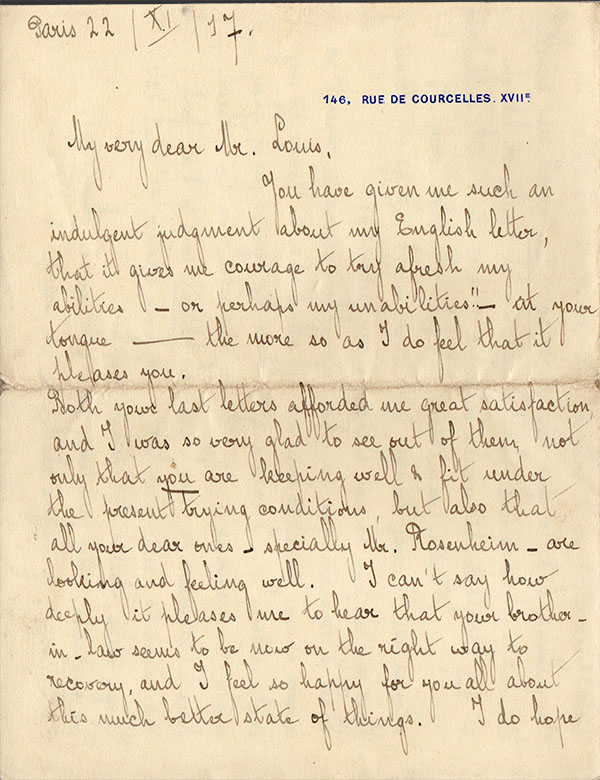 Paris 22 / XI / 17.
146, RUE DE COURCELLES. XVIIE.
My very dear Mr. Louis,
You have given me such an
indulgent judgment about my English letter,
that it gives me courage to try afresh my
abilities – or perhaps my unabilities!! – at your
tongue —— the more so as I do feel that it
pleases you.
Both your last letters afforded me great satisfaction,
and I was so very glad to see out of them, not
only that you are keeping well & fit under
the present trying conditions, but also that
all your dear ones – specially Mr. Rosenheim – are
looking and feeling well. I can't say how
deeply it pleases me to hear that your brother-
in-law seems to be now on the right way to
recovery, and I feel so happy for you all about
this much better state of things. I do hope